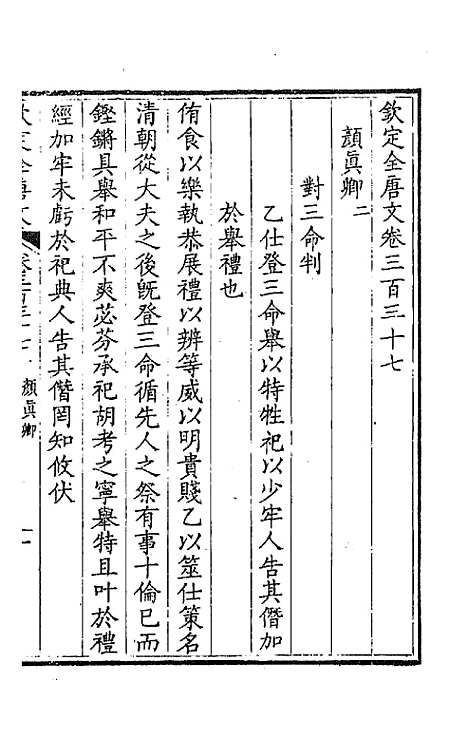 欽定全唐文卷三百三十七
顏眞卿二
對三命判
乙仕登三命舉以特牲祀以少牢人告其僭加
於舉禮也
侑食以樂執恭展禮以辨等威以明貴賤乙以筮仕策名
清朝從大夫之後旣登三命循先人之祭有事十倫巳而
鏗鏘具舉和平不爽苾芬承祀胡考之寧舉特且叶於禮
經加牢未虧於祀典人告其僭罔知攸伏
顏眞卿
一